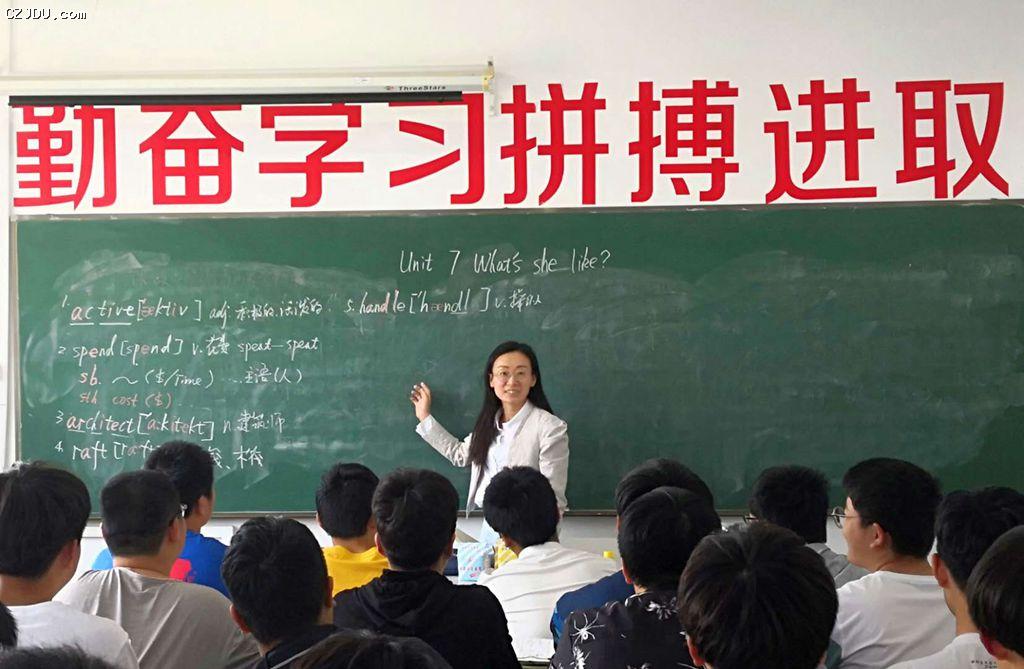 CZJDU.com
ThreeStars
勤奋学习拼搏进取
Unit 7 What's she like?
1. active [æktiv] adj. 积极的.活泼的 5. handle ['hændl] v.
2. spend [spend] v. 花费 speat-speat
sb. ～ ($/Time) ... 主语(人)
sth cost ($)
3. architect ['a:kitekt] n. 建筑师
4. raft